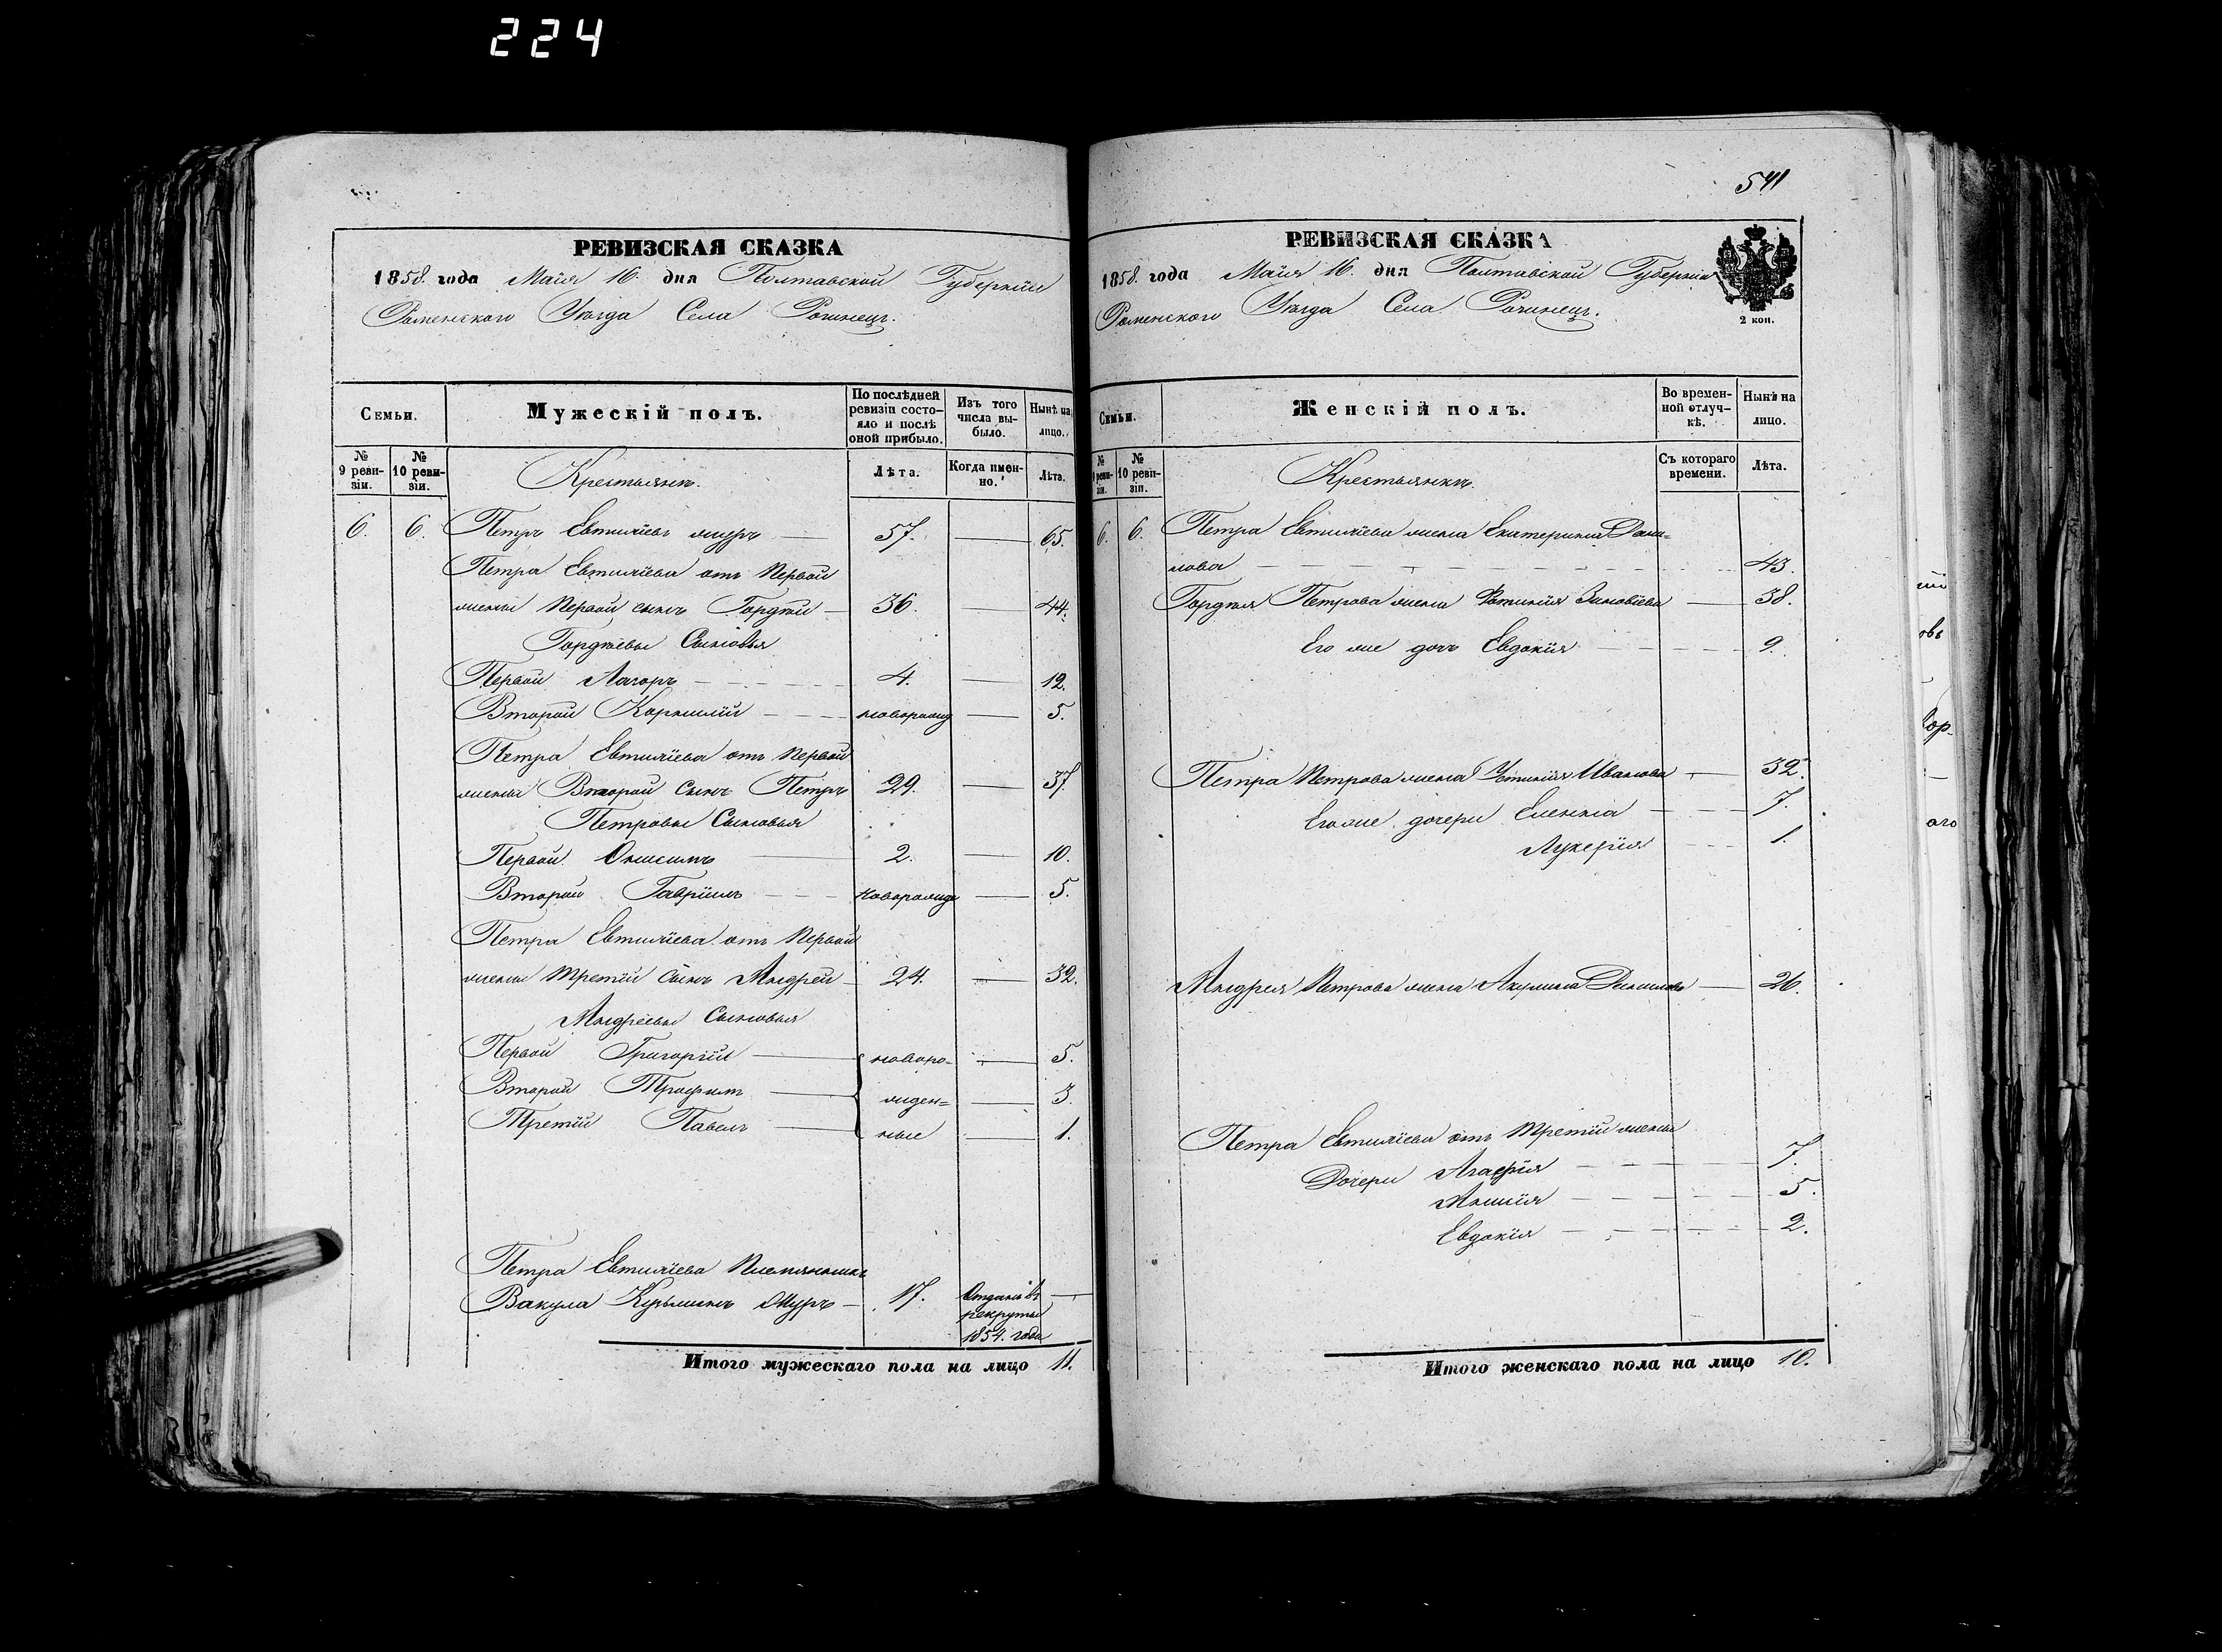 224
541
РЕВИЗСКАЯ СКАЗКА
1858. года Маія 16. дня Полтавской Губерніи
Роменского Уезда Села Рогинец.
Семьи.
Мужескій полъ.
По послѣдней ревизіи состояло и послѣ оной прибыло.
Изъ того числа выбыло.
Нынѣ на лицо.
№ 9 ревизіи.
№ 10 ревизіи.
Крестьянъ.
Лѣта.
Когда именно.
Лѣта.
6. 6. Петръ Евтихіевъ 57. 65.
Петра Евтихіева отъ Первой
жены Первой сынъ Гордѣй 36. 44.
Гордѣевы Сыновья
Первой 4. 12.
Второй Корнилій новорожд 5.
Петра Евтихіева отъ Первой
жены Второй Сынъ Петръ 29. 37.
Петровы Сыновья
Первой Онисимъ 2. 10.
Второй Гавріилъ новорожде 5.
Петра Евтихіева отъ Первой
жены Третій Сынъ Андрей 24. 32.
Андреевы Сыновья
Первой Григорій новоро- 5.
Второй Трофим жден= 3.
Третій Павелъ ные 1.
Петра Евтихіева Племянникъ
Вакула Кузьминъ 17. Отданъ въ
рекруты
1854. года
Итого мужескаго пола на лицо 11.
РЕВИЗСКАЯ СКАЗКА
1858. года Маія 16. дня Полтавской Губерніи
Роменского Уезда Села Рогинец.
2 коп.
Семьи.
Женскій полъ.
Во временной отлучкѣ.
Нынѣ на лицо.
№ 9 ревизіи.
№ 10 ревизіи.
Крестьянкъ.
Съ котораго времени.
Лѣта.
6. 6. Петра Евтихіева жена Екатерина Дани=
лова 43.
Гордея Петрова жена Фотинія Зиновіева 38.
Его же дочь Евдокія 9.
Петра Петрова жена Устинія Иванова 32.
Его же дочери Еленна 7.
Лукерія 1.
Андрея Петрова жена Акулина 26.
Петра Евтихіева отъ Третій жены
Дочери Агафія 7.
Анисія 5.
Евдокія 2.
Итого женскаго пола на лицо 10.